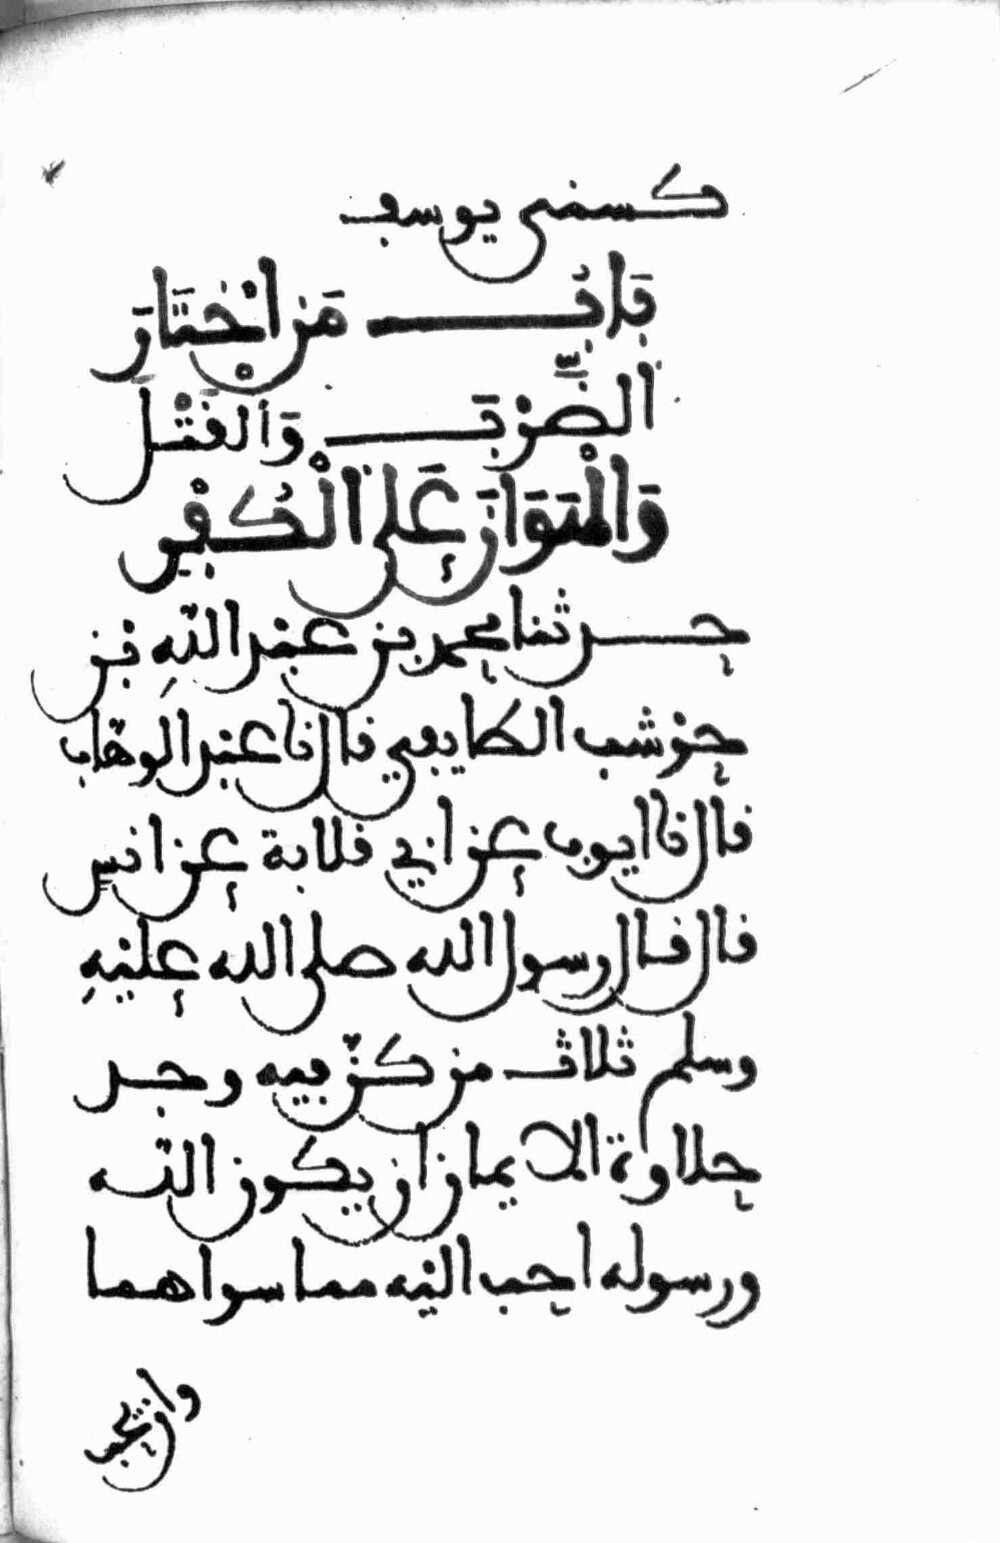 كسني يوسف
بَابُ مَنِ اخْتَارَ
الضَّرْبَ وَالْقَتْلَ
وَالْهَوَانَ عَلَى الْكُفْرِ
حدثنا محمد بن عبد اللّهِ بن
حوشب الطايفي قال نا عبد الوهّاب
قال نا ايوب عن ابي قلابة عن انسٍ
قال قال رسول الله صلى الله عليهِ
وسلم ثلاث من كنّ فيه وجد
حلاوة الايمان ان يكون اللّه
ورسوله احب اليه مما سواهما
وان يحب